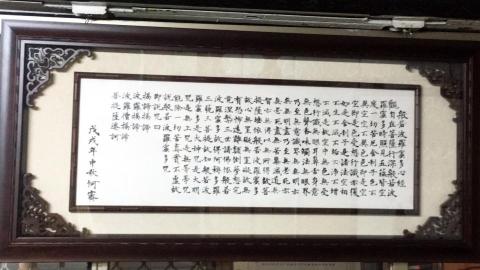 般若波羅蜜多心經
觀自在菩薩行深般若波
羅蜜多時照見五蘊皆空
度一切苦厄舍利子色不
異空空不異色色即是空
空即是色受想行識亦復
如是舍利子是諸法空相
不生不滅不垢不淨不增
不減是故空中無色無受
想行識無眼耳鼻舌身意
無色聲香味觸法無眼界
乃至無意識界無無明亦
無無明盡乃至無老死亦
無老死盡無苦集滅道無
智亦無得以無所得故菩
提薩埵依般若波羅蜜多
故心無罣礙無罣礙故無
有恐怖遠離顛倒夢想究
竟涅槃三世諸佛依般若
波羅蜜多故得阿耨多羅
三藐三菩提故知般若波
羅蜜多是大神咒是大明
咒是無上咒是無等等咒
能除一切苦真實不虛故
說般若波羅蜜多咒
即說咒曰
揭諦揭諦
波羅揭諦
波羅僧揭諦
菩提薩婆訶
戊戌年中秋何霖